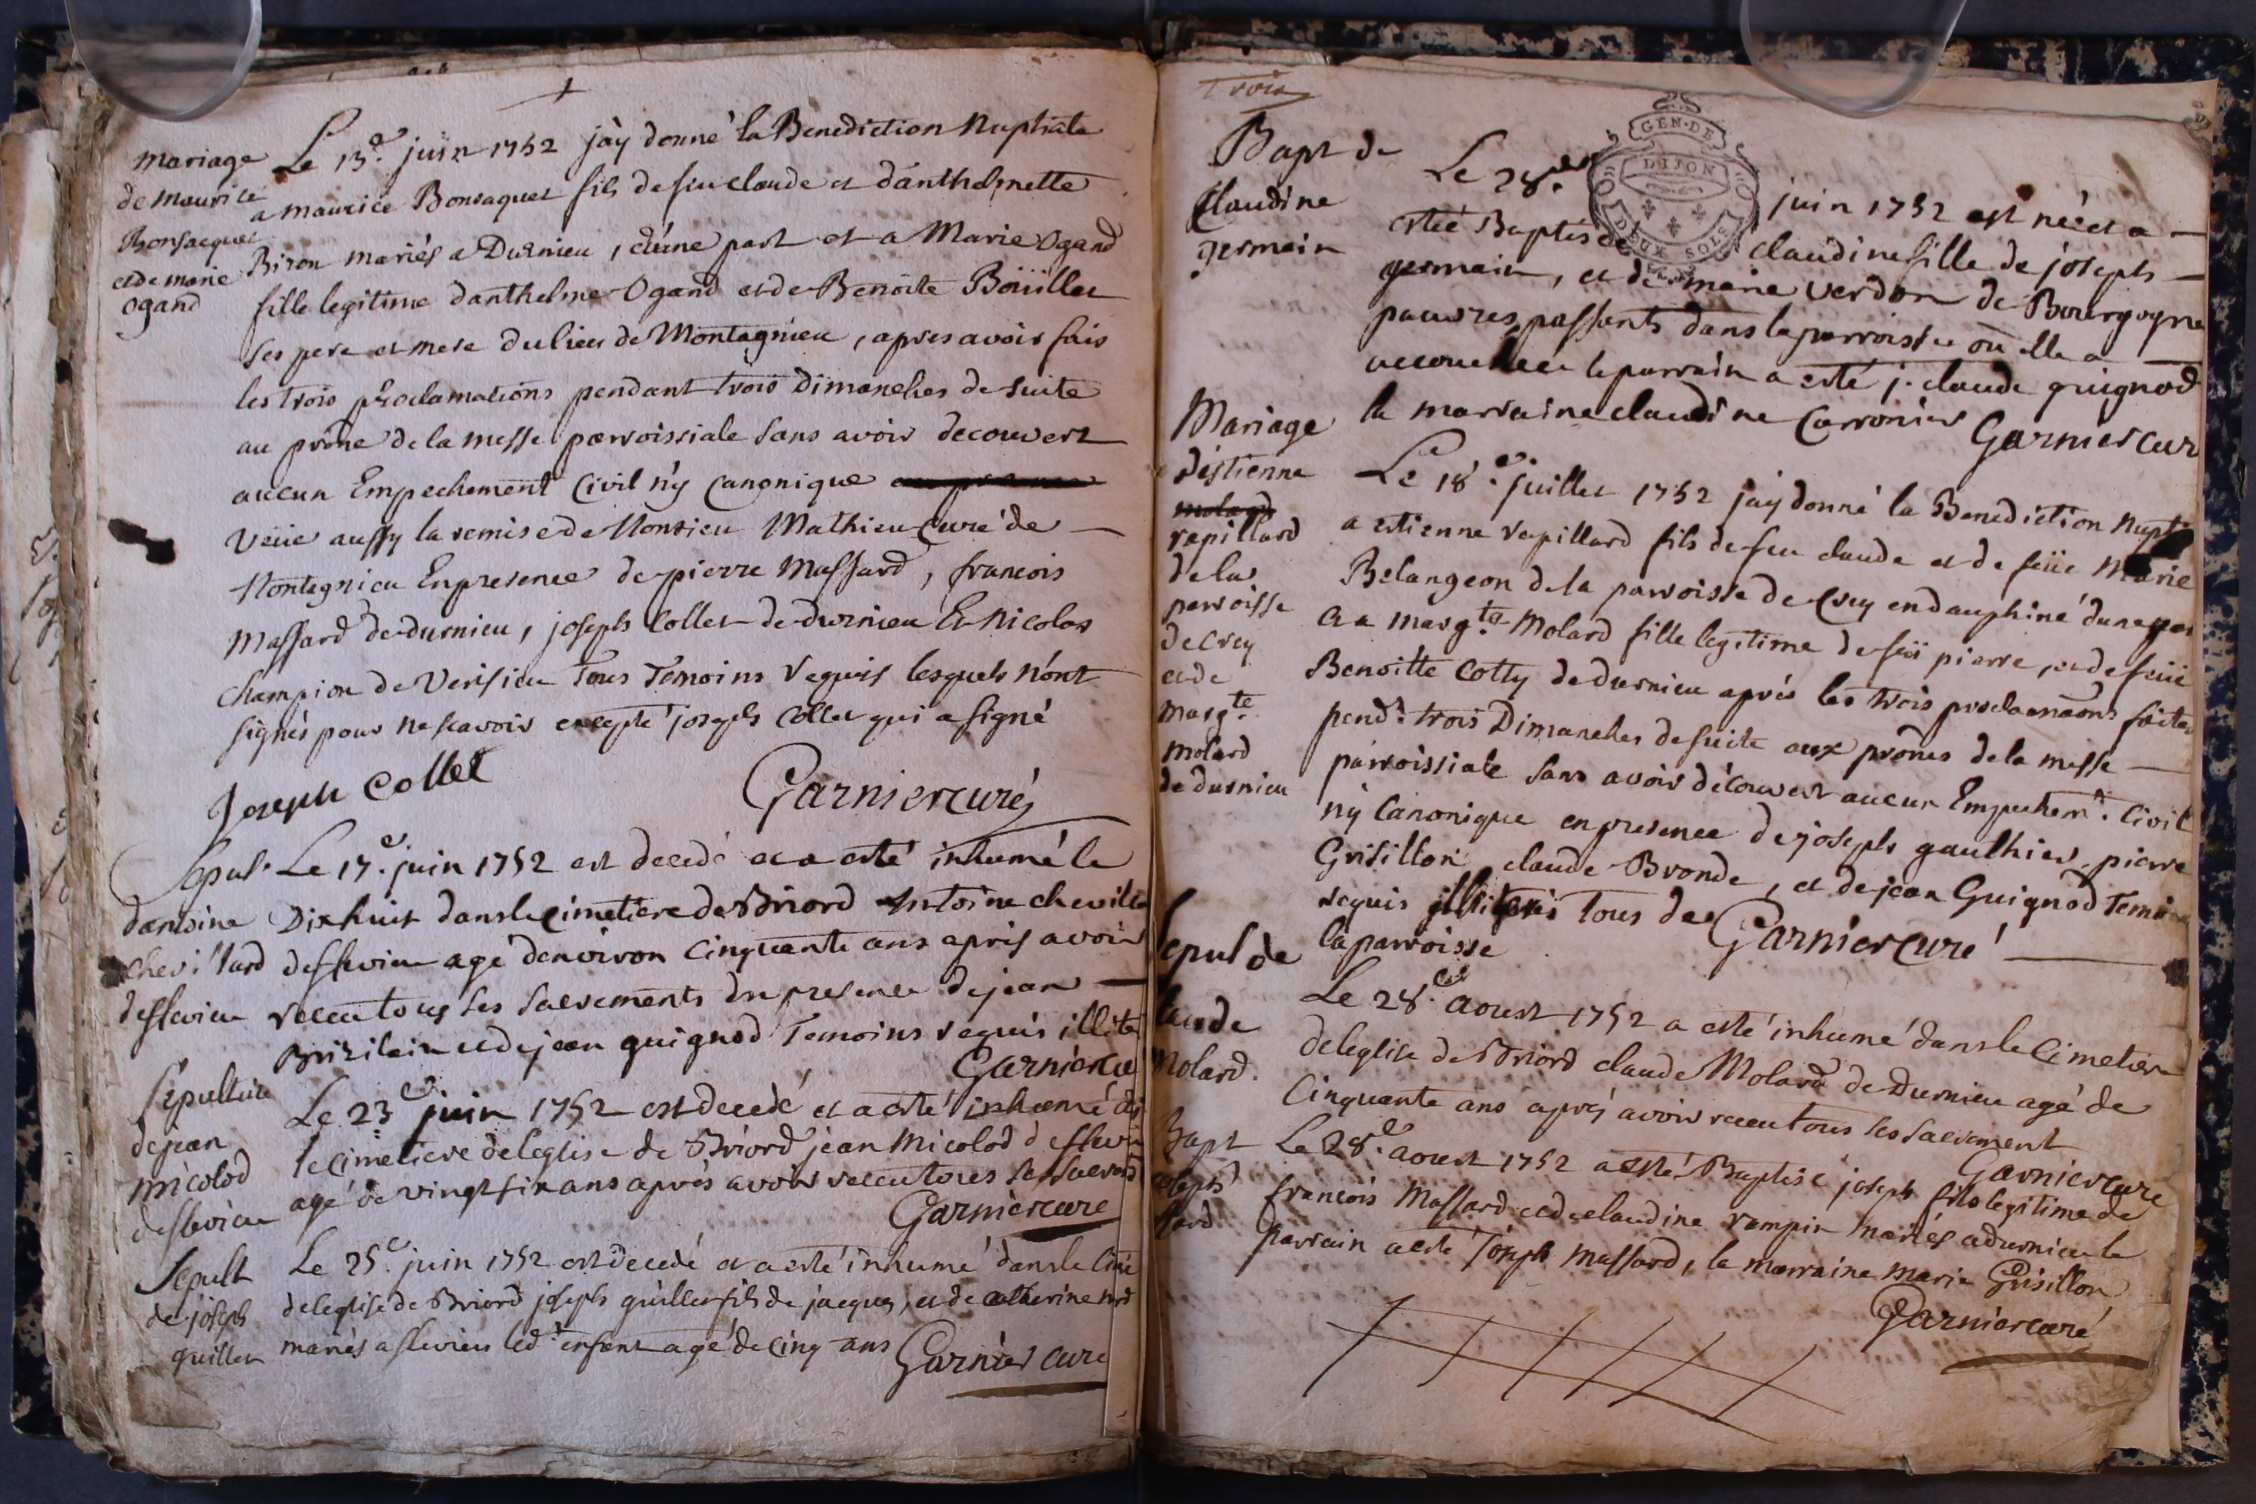 mariage
de maurice
Bonsacquet
et de marie
ogand
Le 13.e juin 1752 j'ày donné la Benediction Nuptiale
a maurice Bonsaquet fils de feu claude et d'anthelmette
Biron mariés a Durnieu, d'une part et a Marie Ogand
fille legitime d'anthelme Ogand et de Benoite Boüillet
ses pere et mere du lieu de Montagnieu, apres avoir fais
les trois proclamations pendant trois Dimanches de suite
au prône de la messe parroissiale sans avoir decouvert
aucun Empechement Civil n'y Canonique
veüe aussy la remise de Monsieu Mathieu Curé de
Montagnieu En presence de pierre Massard, francois
Massard de durnieu, joseph Collet de durnieu Et Nicolas
Champion de Verisieu Tous Temoins requis lesquels n'ont
signés pour ne scavoir excepté joseph Collet qui a signé
Joseph Collet
Garnier curé
Sepul.
d'antoine
chevillard
deflevieu
Le 17.e juin 1752 est decedé et a esté inhumé le
Dixhuit dans le cimetiere de Briord Antoine chevilla
deflevieu agé d'environ Cinquante ans aprés avoir
receu tous ses sacrements En presence de jean
et de jean guignod Temoins requis illite
Garnier cu
Sépulture
de jean
micolod
deflevieu
Le 23.e juin 1752 est decedé et a esté inhumé ds
le cimetiere de leglise de Briord jean Micolod deflevi
agé de vingt six ans aprés avoir receu toues ses sacrem
Garnier curé
Sepult
de joseph
guillet
Le 25.e juin 1752 est decedé et a esté inhumé dans le Cime
de leglise de Briord joseph guillet fils de jacques, et de catherine
mariés a flevieu led.t enfant agé de cinq ans
Garnier curé
Trois
GEN. DE
DIJON
DEUX SOLS
Bapt de
Claudine
germain
Le 28.e juin 1752 est neé et a
esteé Baptisée claudine fille de joseph
germain, et de marie verdon de Bourgogne
pauvres passants dans la parroisse où elle a
accouchée le parrain a esté j. claude guignod
la marraine claudine Carronier
Garnier cur
Mariage
d'estienne
molard
vapillard
de la
parroisse
de Crey
et de
marg.te
molard
de durnieu
Le 18.e juillet 1752 jay donné la Benediction Nupti
a estienne vapillard fils de feu claude et de feüe Marie
Belangeon de la parroisse de Crey en dauphiné d'une par
et a marg.te Molard fille legitime de feü pierre, et de feüe
Benoitte Cotty de durnieu aprés les trois proclamaons faites
pend.t trois Dimanches de suite aux prônes de la messe
parroissiale sans avoir découvert aucun Empechem.t Civil
n'y Canonique en presence de joseph gaulthier, pierre
Grisillon claude Bronde, et de jean Guignod Temoins
requis illiterés tous de
la parroisse
Garnier Curé
Sepul de
laude
Molard.
Le 28.e aoust 1752 a esté inhumé dans le Cimetier
de leglise de Briord claude Molard de Durnieu agé de
Cinquante ans aprés avoir receu tous les sacrement
Garnier curé
Bapt
joseph
ssard
Le 28.e aoust 1752 a esté Baptisé joseph fils legitime de
francois Massard et de claudine rampin mariés a durnieu le
parrain a esté joseph massard, la marraine marie Grisillon
Garnier curé